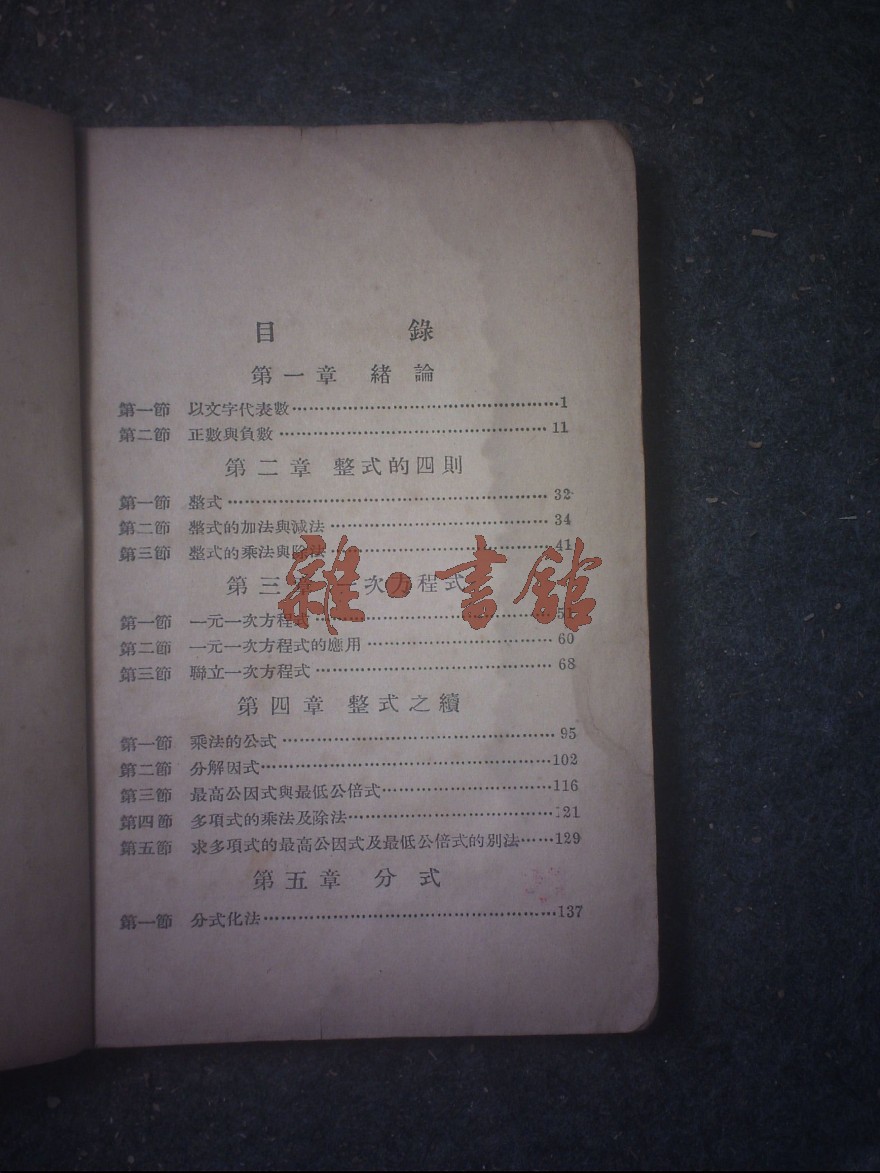 目 錄
第一章 緒論
第一節 以文字代表數……1
第二節 正數與負數……11
第二章 整式的四則
第一節 整式……32
第二節 整式的加法與減法……34
第三節 整式的乘法與除法……41
第三章 一次方程式
第一節 一元一次方程式……
第二節 一元一次方程式的應用……60
第三節 聯立一次方程式……68
第四章 整式之續
第一節 乘法的公式……95
第二節 分解因式……102
第三節 最高公因式與最低公倍式……116
第四節 多項式的乘法及除法……121
第五節 求多項式的最高公因式及最低公倍式的別法……129
第五章 分式
第一節 分式化法……137
雜·書館